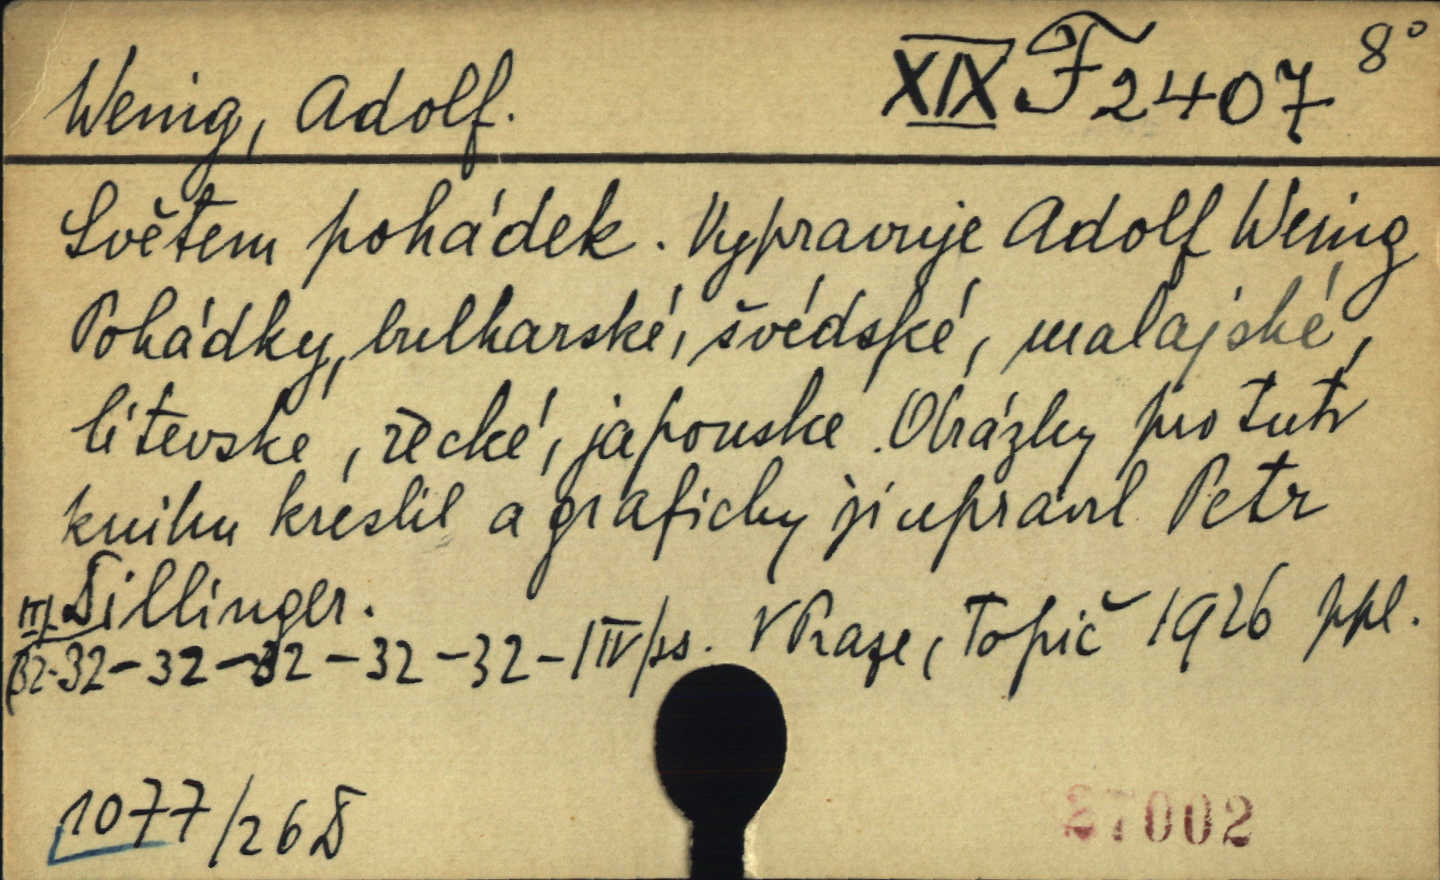 Wenig, Adolf.
XIX F 2407 8°
Světem pohádek. Vypravuje Adolf Wenig
Pohádky bulharské, švédské, malajské,
litevské, řecké, japonske. Obrázky pro tuto
knihu kreslil a graficky ji upravil Petr
Dillinger.
32-32-32-32-32-32-IIV/ss. V Praze, Topič 1926 ppl.
1077/26 D
27002